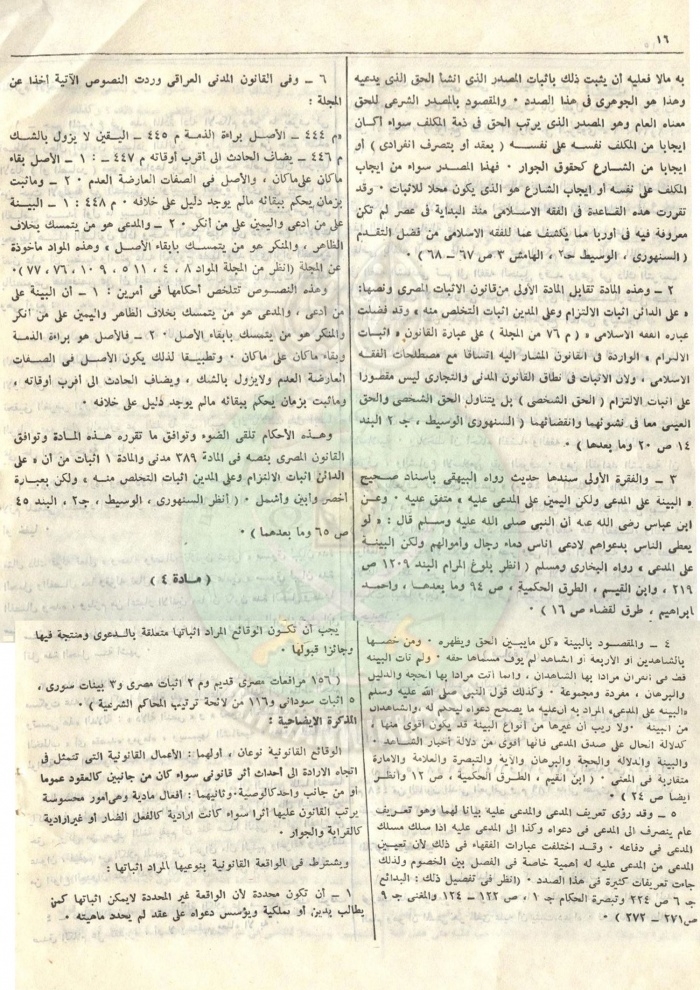 ١٦
به مالا فعليه أن يثبت ذلك باثبات المصدر الذى انشأ الحق الذى يدعيه
وهذا هو الجوهرى فى هذا الصدد ٠ والمقصود بالمصدر الشرعى للحق
معناه العام وهو المصدر الذى يرتب الحق فى ذمة المكلف سواء أكان
ايجابا من المكلف نفسه على نفسه ( بعقد أو بتصرف انفرادى ) او
ايجابا من الشارع كحقوق الجوار ٠ فهذا المصدر سواء من ايجاب
المكلف على نفسه أو ايجاب الشارع هو الذى يكون محلا للاثبات ٠ وقد
تقررت هذه القاعدة فى الفقه الاسلامى منذ البداية فى عصر لم تكن
معروفة فيه فى أوربا مما يكشف عما للفقه الاسلامى من فضل التقدم
( السنهورى ، الوسيط ح٢ ، الهامش ٣ ص ٦٧ ــ ٦٨ ) ٠
٢ ــ وهذه المادة تقابل المادة الأولى من قانون الاثبات المصرى ونصها:
« على الدائن اثبات الالتزام وعلى المدين اثبات التخلص منه » وقد فضلت
عبارة الفقه الاسلامى « ( م ٧٦ من المجلة ) على عبارة القانون « اثبات
الالتزام » الواردة فى القانون المشار اليه اتساقا مع مصطلحات الفقه
الاسلامى ، ولان الاثبات فى نطاق القانون المدنى والتجارى ليس مقصورا
على اثبات الالتزام ( الحق الشخصى ) بل يتناول الحق الشخصى والحق
العينى معا فى نشوئهما وانقضائهما ( السنهورى الوسيط ، جـ ٢ البند
١٤ ص ٢٠ وما بعدها ) ٠
٣ ــ والفقرة الأولى سندها حديث رواه البيهقى بأسناد صحيح
« البينة على المدعى ولكن اليمين على المدعى عليه » متفق عليه ٠ وعن
ابن عباس رضى الله عنه أن النبى صلى الله عليه وسلم قال : « لو
يعطى الناس بدعواهم لادعى اناس دماء رجال وأموالهم ولكن البينة
على المدعى » رواه البخارى ومسلم ( انظر بلوغ المرام البند ١٢٠٩ ص
٢١٩ ، وابن القيم ، الطرق الحكمية ، ص ٩٤ وما بعدها ، وأحمد
ابراهيم ، طرق القضاء ص ١٦ ) ٠
٤ ــ والمقصود بالبينة « كل مايبين الحق ويظهره ٠ ومن خصها
بالشاهدين أو الاربعه أو الشاهد لم يوف مسماها حقه ٠ ولم تأت البينه
قط فى القران مرادا بها الشاهدان ، وانما أتت مرادا بها الحجه والدليل
والبرهان ، مفردة ومجموعة ٠ وكذلك قول النبى صلى الله عليه وسلم
«البينة على المدعى» المراد به أن عليه ما يصحح دعواه ليحكم له ، والشاهدان
من البينه ٠ ولا ريب أن غيرها من أنواع البينة قد يكون أقوى منها ،
كدلالة الحال على صدق المدعى فانها أقوى من دلالة أخبار الشاهد ٠
والبينة والدلالة والحجة والبرهان والآية والتبصرة والعلامة والامارة
متقاربة فى المعنى ٠ ( ابن القيم ، الطرق الحكمية ، ص ١٢ وانظر
ايضا ص ٢٤ ) ٠
٥ ــ وقد رؤى تعريف المدعى والمدعى عليه بيانا لهما وهو تعريف
عام ينصرف الى المدعى فى دعواه وكذا الى المدعى عليه اذا سلك مسلك
المدعى فى دفاعه ٠ وقد اختلفت عبارات الفقهاء فى ذلك لأن تعيين
المدعى من المدعى عليه له أهمية خاصة فى الفصل بين الخصوم ولذلك
جاءت تعريفات كثيرة فى هذا الصدد ٠ ( انظر فى تفصيل ذلك : البدائع
جـ ٦ ص ٢٢٤ وتبصرة الحكام جـ ١ ، ص ١٢٢ ــ ١٢٤ والمغنى جـ ٩
ص ٢٧١ ــ ٢٧٢ ) ٠
٦ ــ وفى القانون المدنى العراقى وردت النصوص الآتية أخذا عن
المجلة :
«م ٤٤٤ ــ الأصل براءة الذمة م ٤٤٥ ــ اليقين لا يزول بالشك
م ٤٤٦ ــ يضاف الحادث الى أقرب أوقاته م ٤٤٧ ــ : ١ ــ الأصل بقاء
ماكان على ماكان ، والأصل فى الصفات العارضة العدم ٠ ٢ ــ وماثبت
بزمان يحكم ببقائه مالم يوجد دليل على خلافه ٠ م ٤٤٨ : ١ ــ البينة
على من ادعى واليمين على من أنكر ٠ ٢ ــ والمدعى هو من يتمسك بخلاف
الظاهر ، والمنكر هو من يتمسك بابقاء الأصل » وهذه المواد مأخوذة
عن المجلة (انظر من المجلة المواد ٨ ، ٤ ، ١١ ٥ ، ٩ ١٠ ، ٧٦ ، ٧٧)٠
وهذه النصوص تتلخص أحكامها فى أمرين : ١ ــ أن البينة على
من أدعى ، والمدعى هو من يتمسك بخلاف الظاهر واليمين على من أنكر
والمنكر هو من يتمسك بابقاء الأصل ٠ ٢ ــ فالأصل هو براءة الذمة
وبقاء ماكان على ماكان ٠ وتطبيقا لذلك يكون الأصل فى الصفات
العارضة العدم ولايزول بالشك ، ويضاف الحادث الى أقرب أوقاته ،
وماثبت بزمان يحكم ببقائه مالم يوجد دليل على خلافه ٠
وهذه الأحكام تلقى الضوء وتوافق ما تقرره هذه المادة وتوافق
القانون المصرى بنصه فى المادة ٣٨٩ مدنى والمادة ١ اثبات من أن « على
الدائن اثبات الالتزام وعلى المدين اثبات التخلص منه » ولكن بعبارة
أخصر وأبين وأشمل ٠ ( أنظر السنهورى ، الوسيط ، جـ٢ ، البند ٤٥
ص ٦٥ وما بعدهما ) ٠
( مادة ٤ )
يجب أن تكون الوقائع المراد اثباتها متعلقة بالدعوى ومنتجة فيها
وجائزا قبولها ٠
( ١٥٦ مرافعات مصرى قديم وم ٢ اثبات مصرى و٣ بينات سورى ،
٥ اثبات سودانى و١١٦ من لائحة ترتيب المحاكم الشرعية ) ٠
المذكرة الايضاحية :
الوقائع القانونية نوعان ، اولهما : الأعمال القانونية التى تتمثل فى
اتجاه الارادة الى أحداث أثر قانونى سواء كان من جانبين كالعقود عموما
أو من جانب واحد كالوصية٠ وثانيهما : أفعال مادية وهى أمور محسوسة
يرتب القانون عليها أثرا سواء كانت ارادية كالفعل الضار أو غير ارادية
كالقرابة والجوار ٠
ويشترط فى الواقعة القانونية بنوعيها المراد اثباتها :
١ ــ أن تكون محددة لأن الواقعة غير المحددة لايمكن اثباتها كمن
يطالب بدين أو بملكية ويؤسس دعواه على عقد لم يحدد ماهيته ٠